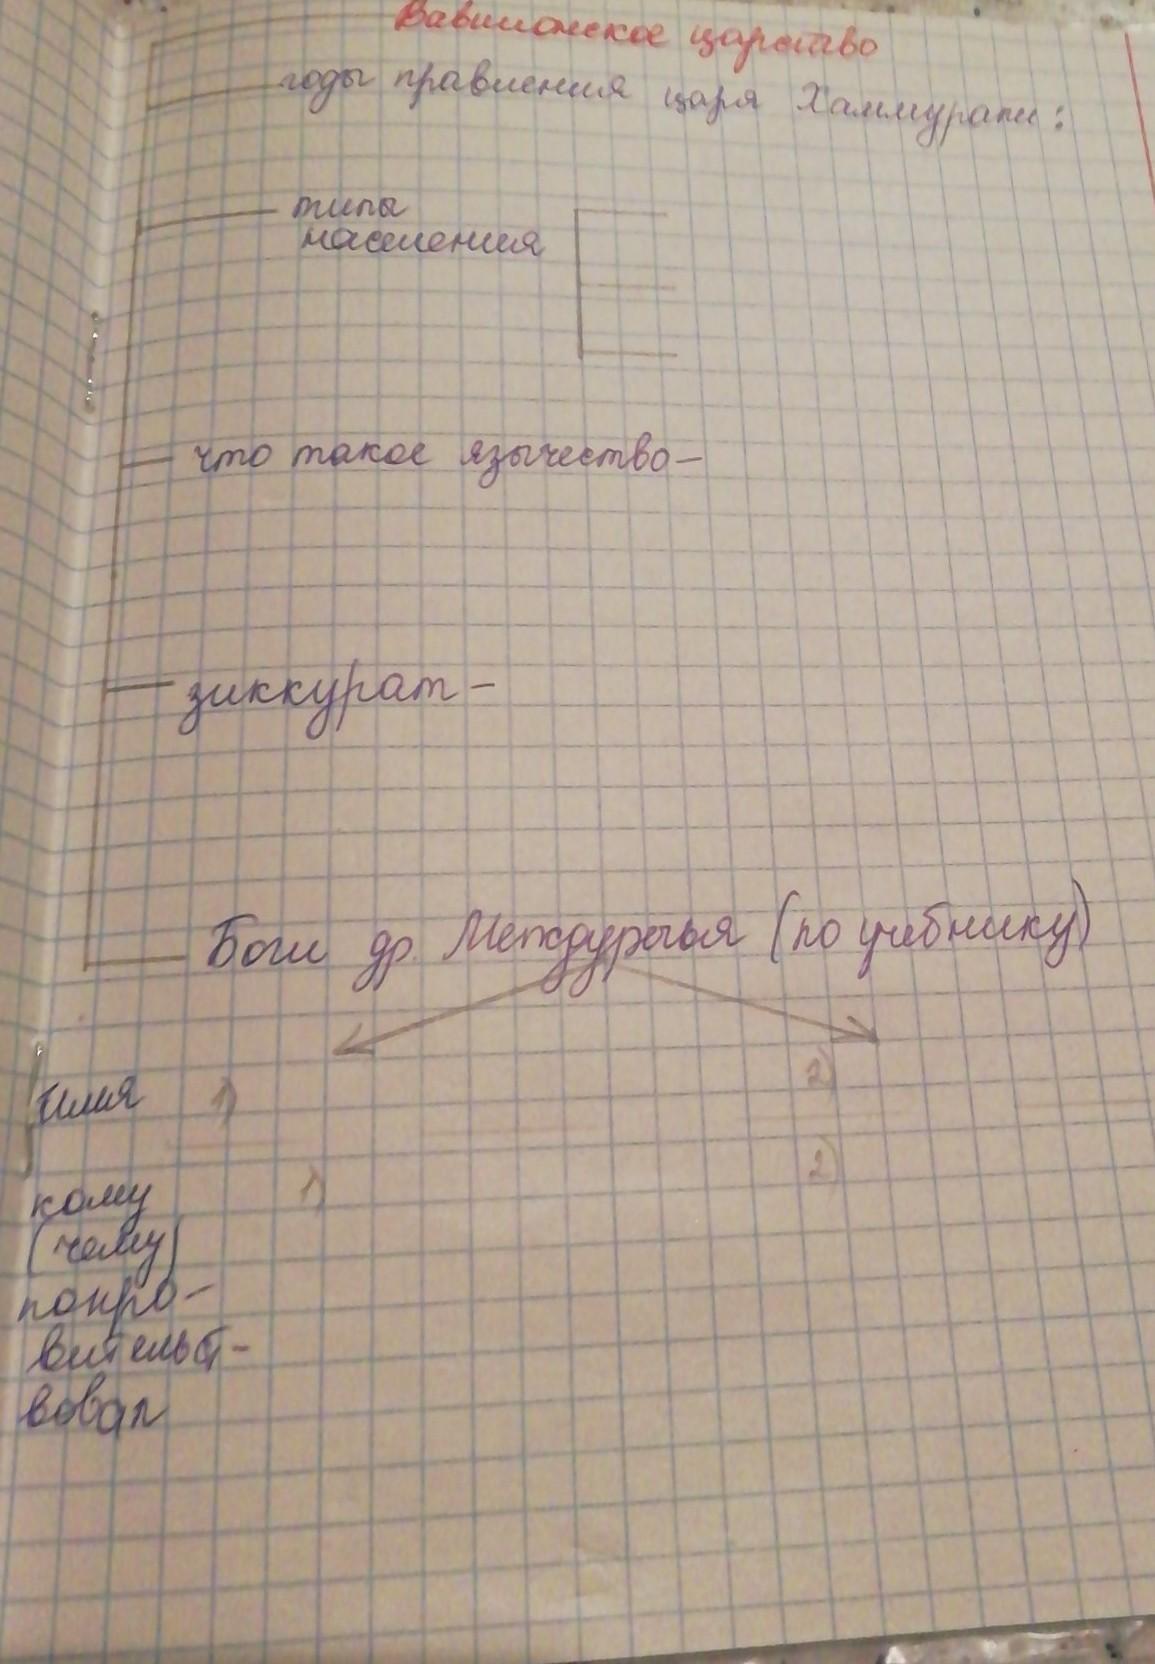 Вавилонское царство
годы правления царя Хаммурапи:
типы
населения
что такое язычество–
зиккурат –
Боги др. Междуречья (по учебнику)
Имя 1) 2)
кому 1) 2)
(чему)
покро-
вительст-
вовал